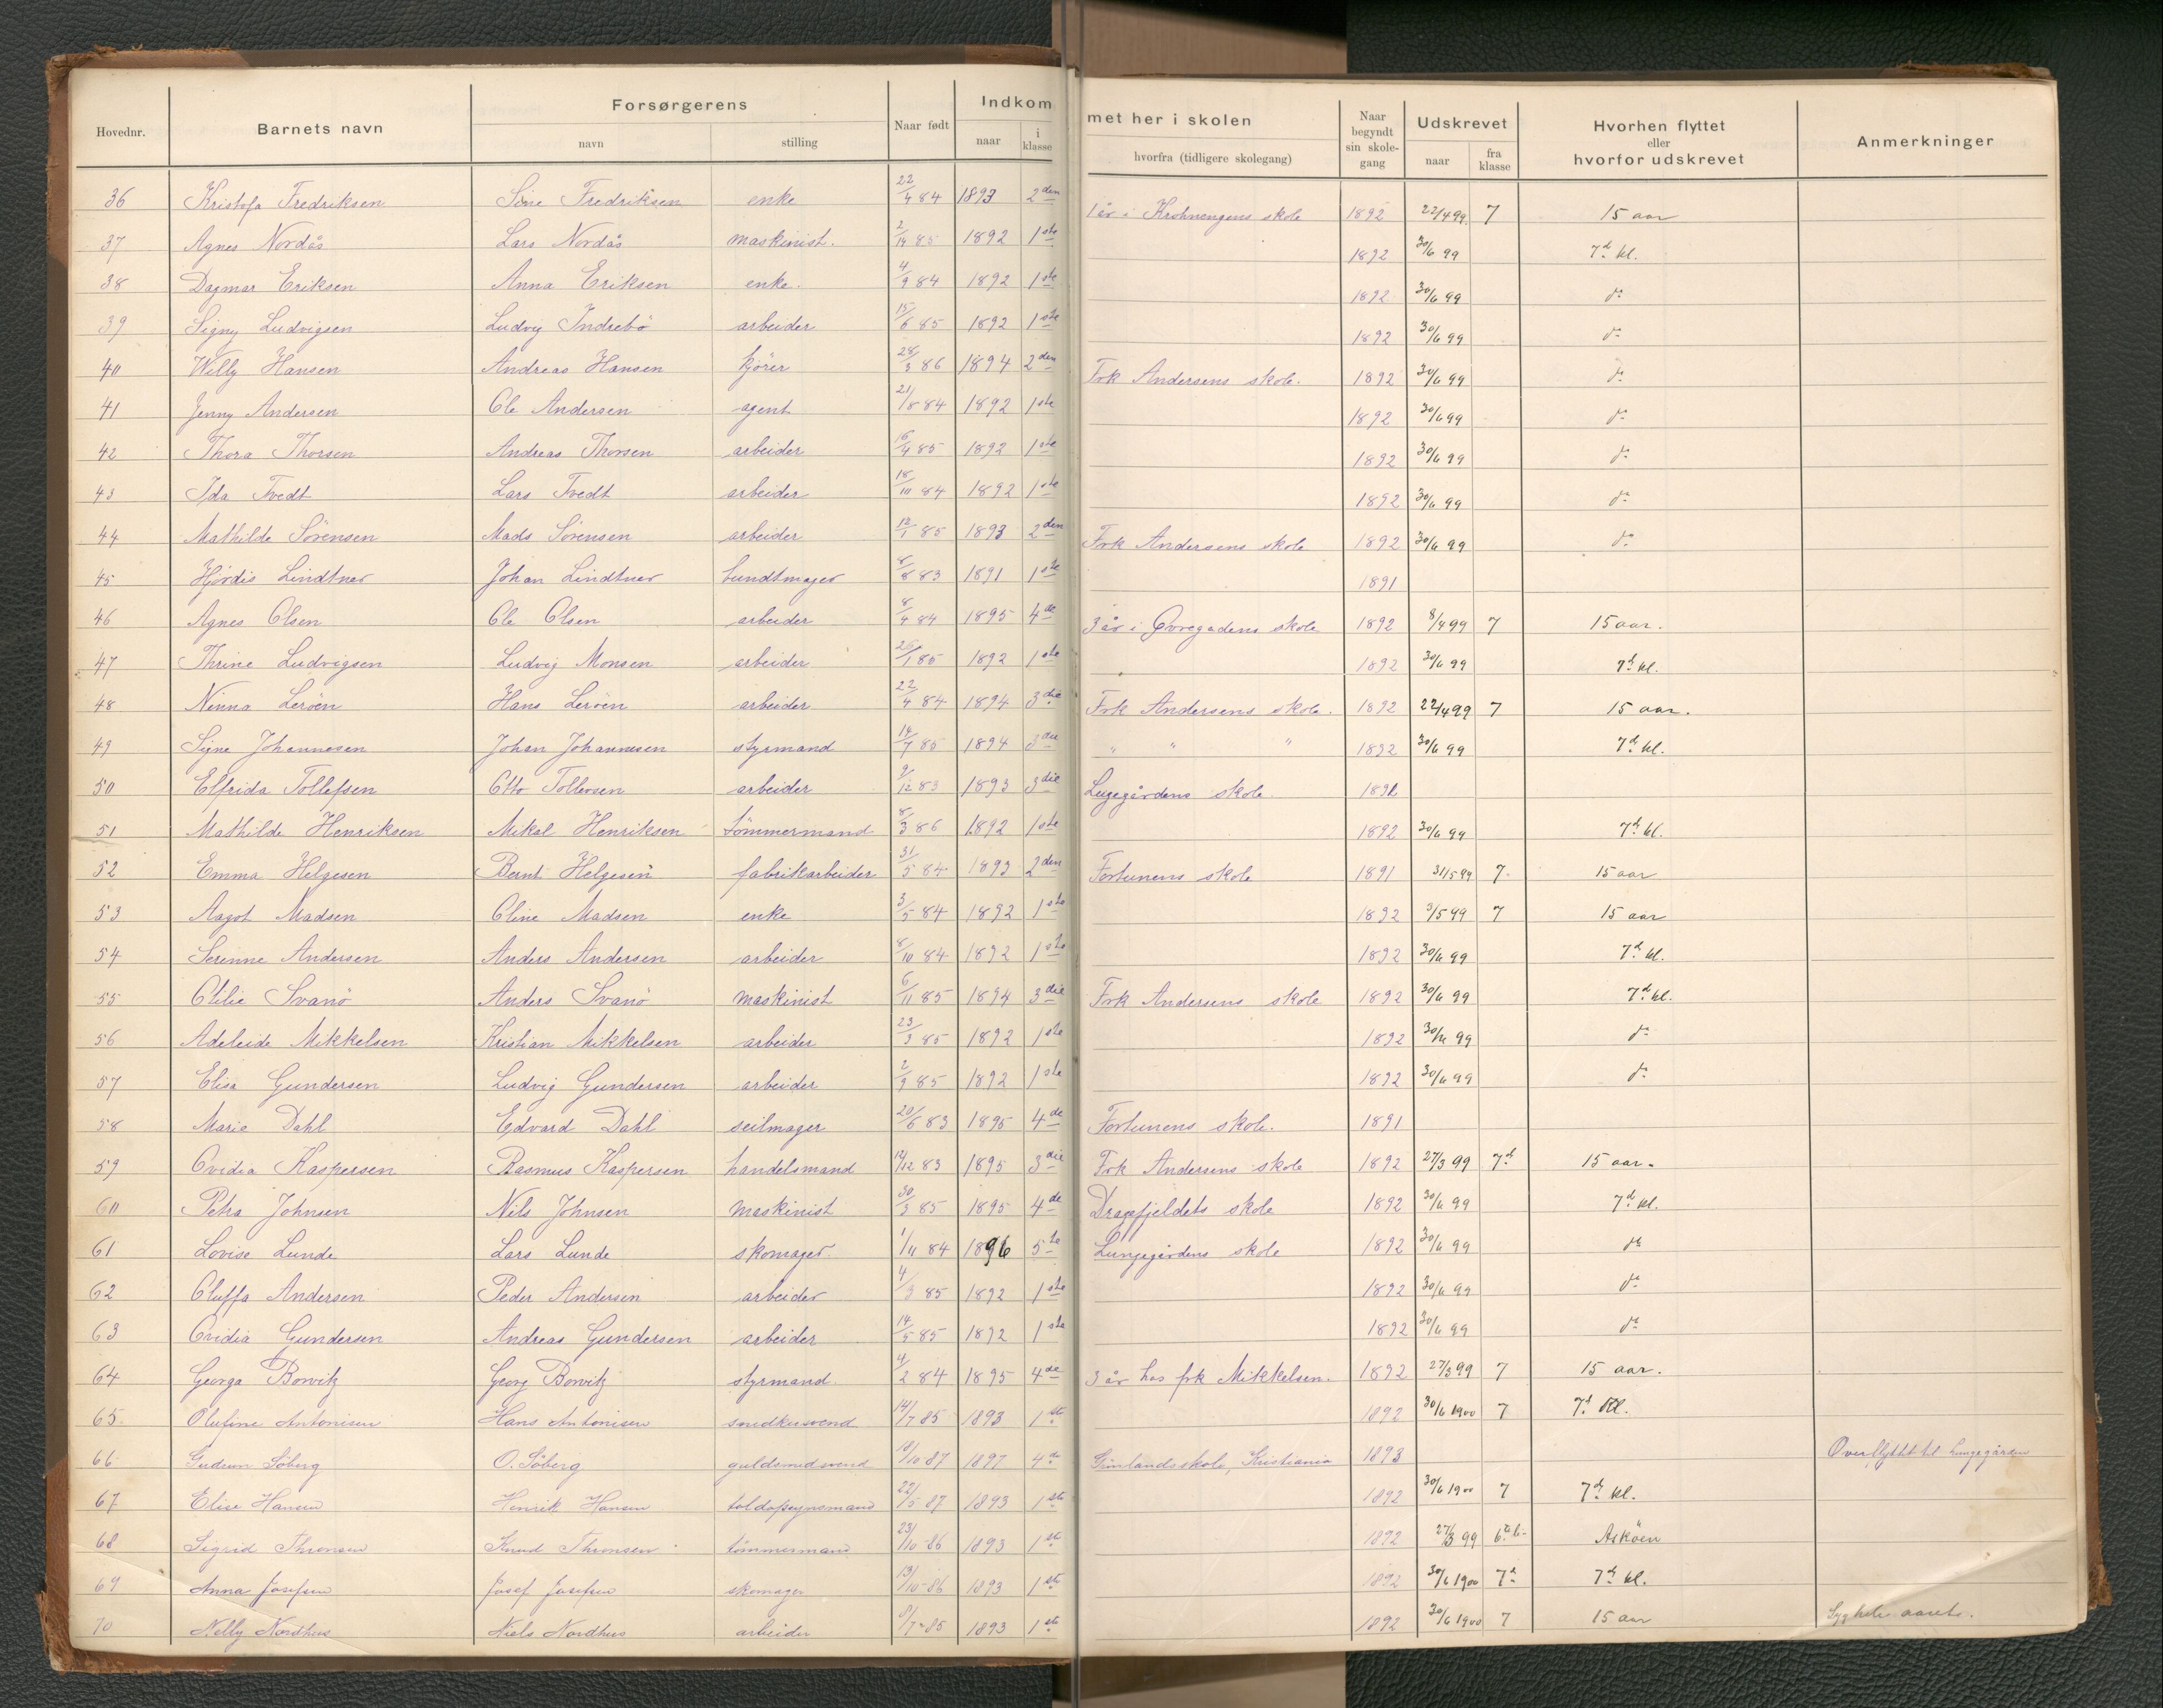 Hovednr. Barnets navn Forsørgerens navn stilling Naar født Indkommet her i skolen naar i klasse hvorfra (tidligere skolegang) Naar begyndt sin skolegang Udskrevet naar fra klasse Hvorhen flyttet eller hvorfor udskrevet Anmerkninger
36 Kristofa Fredriksen Sine Fredriksen enke 22/4 84 1893 2den 1 år i Krohnengens skole 1892 22/4 99 7 15 aar
37 Agnes Nordås Lars Nordås maskinist. 1892 1ste 1892 30/6 99 7d kl.
38 Dagmar Eriksen Anna Eriksen enke. 4/9 84 1892 1ste 1892 30/6 99 do
39 Signy Ludvigsen Ludvig Indrebö arbeider 15/6 85 1892 1ste 1892 30/6 99 do
40 Willy Hansen Andreas Hansen kjörer 28/3 86 1894 2den Frk Andersens skole. 1892 30/6 99 do
41 Jenny Andersen Ole Andersen agent 21/8 84 1892 1ste 1892 30/6 99 do
42 Thora Thorsen Andreas Thorsen arbeider 16/4 85 1892 1ste 1892 30/6 99 do
43 Ida Tvedt Lars Tvedt arbeider 18/10 84 1892 1ste 1892 30/6 99 do
44 Mathilde Sörensen Mads Sörensen arbeider 12/1 85 1893 2den Frk Andersens skole 1892 30/6 99 do
45 Hjördis Lindtner Johan Lindtner bundtmager 8/8 83 1891 1ste 1891
46 Agnes Olsen Ole Olsen arbeider 8/4 84 1895 4de 3 år i Øvregadens skole 1892 8/4 99 7 15 aar.
47 Thrine Ludvigsen Ludvig Monsen arbeider 26/1 85 1892 1ste 1892 30/6 99 7d kl.
48 Ninna Leröen Hans Leröen arbeider 22/4 84 1894 3die Frk Andersens skole. 1892 22/4 99 7 15 aar.
49 Signe Johannesen Johan Johannesen styrmand 14/7 85 1894 3die " " " 1892 30/6 99 7d kl.
50 Elfrida Tollefsen Otto Tollevsen arbeider 9/12 83 1893 3die Lugegårdens skole.
51 Mathilde Henriksen Mikal Henriksen tömmermand 8/3 86 1892 1ste 1892 30/6 99 7d kl.
52 Emma Helgesen Bernt Helgesen fabrikarbeider 31/5 84 1893 2den Fortunens skole 1891 31/5 99 7 15 aar
53 Aagot Madsen Oline Madsen enke 3/5 84 1892 1ste 1892 3/5 99 7 15 aar
54 Serinne Andersen Anders Andersen arbeider 8/10 84 1892 1ste 1892 30/6 99 7d kl.
55 Otilie Svanö Anders Svanö maskinist 6/11 85 1894 3die Frk Andersens skole 1892 30/6 99 7d kl.
56 Adeleide Mikkelsen Kristian Mikkelsen arbeider 23/3 85 1892 1ste 1892 30/6 99 do
57 Elisa Gundersen Ludvig Gundersen arbeider 2/9 85 1892 1ste 1892 30/6 99 do
58 Marie Dahl Edvard Dahl seilmager 20/6 83 1895 4de Fortunens skole. 1891
59 Ovidia Kaspersen Rasmus Kaspersen handelsmand 14/12 83 1895 3die Frk Andersens skole 1892 27/3 99 7d 15 aar.
60 Petra Johnsen Nils Johnsen maskinist 30/3 85 1895 4de Dragefjeldets skole 1892 30/6 99 7d kl.
61 Lovise Lunde Lars Lunde skomager. 1/11 84 1896 5te Lungegårdens skole 1892 30/6 99 do
62 Oluffa Andersen Peder Andersen arbeider 4/3 85 1892 1ste 1892 30/6 99 do
63 Ovidia Gundersen Andreas Gundersen arbeider 14/5 85 1892 1ste 1892 30/6 99 do
64 Georga Borvitz Georg Borvitz styrmand. 4/2 84 1895 4de 3 år hos frk Mikkelsen. 1892 27/3 99 7 15 aar.
65 Olufine Antonisen Hans Antonisen smedkesvend 14/7 85 1893 1ste 1892 30/6 1900 7 7d Kl.
66 Gudrun Söberg O. Söberg guldsmedsvend 18/10 87 1897 4de Grünlandsskole, Kristiania 1893 Overflyttet til Lungegården
67 Elise Hansen Henrik Hansen toldopsynsmand 22/5 87 1893 1ste 1892 30/6 1900 7 7d kl.
68 Sigrid Thronsen Knud Thronsen tömmermand 23/10 86 1893 1ste 1892 27/3 99 Asköen
69 Anna Josefsen Josef Josefsen skomager 13/10 86 1893 1ste 1892 30/6 1900 7d 7d kl.
70 Nelly Nordhus Niels Nordhus arbeider 8/7 85 1893 1ste 1892 30/6 1900 7 15 aar aaret.